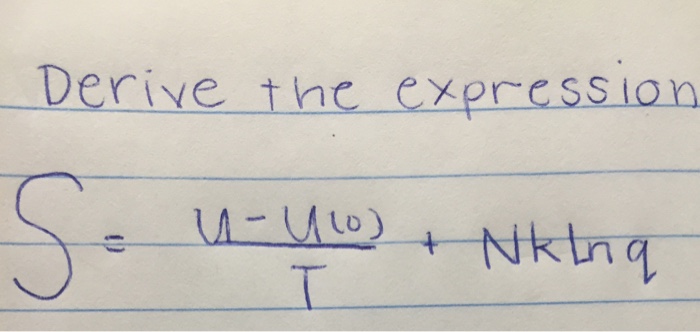 Derive the expression
S = U - U(0) / T + Nk ln q